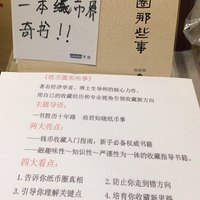 一本纸币界
奇书!!
圈那些事
《纸币圈那些事》
著名经济学者、博士生导师的倾心作品,
用自己的收藏经历和专业视角引领收藏新方向
主题导语:
一书胜万十年路 给君知晓纸币事
两大亮点:
——钱币收藏入门指南,新手必备权威书籍
——融趣味性~知识性~严谨性为一体的收藏指导书籍,
四大看点:
1. 告诉你纸币圈真相
2. 防止你走到错方向
3. 引导你理解关键点
4. 培育你收藏新思路